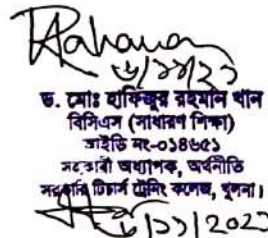 Rahman
৬/১১/২৩
ড. মোঃ হাফিজুর রহমান খান
বিসিএস (সাধারণ শিক্ষা)
আইডি নং-০১৪৬৫১
সরকারী অধ্যাপক, অর্থনীতি
সরকারি টিচার্স ট্রেনিং কলেজ, খুলনা।
৬/১১/২০২৩